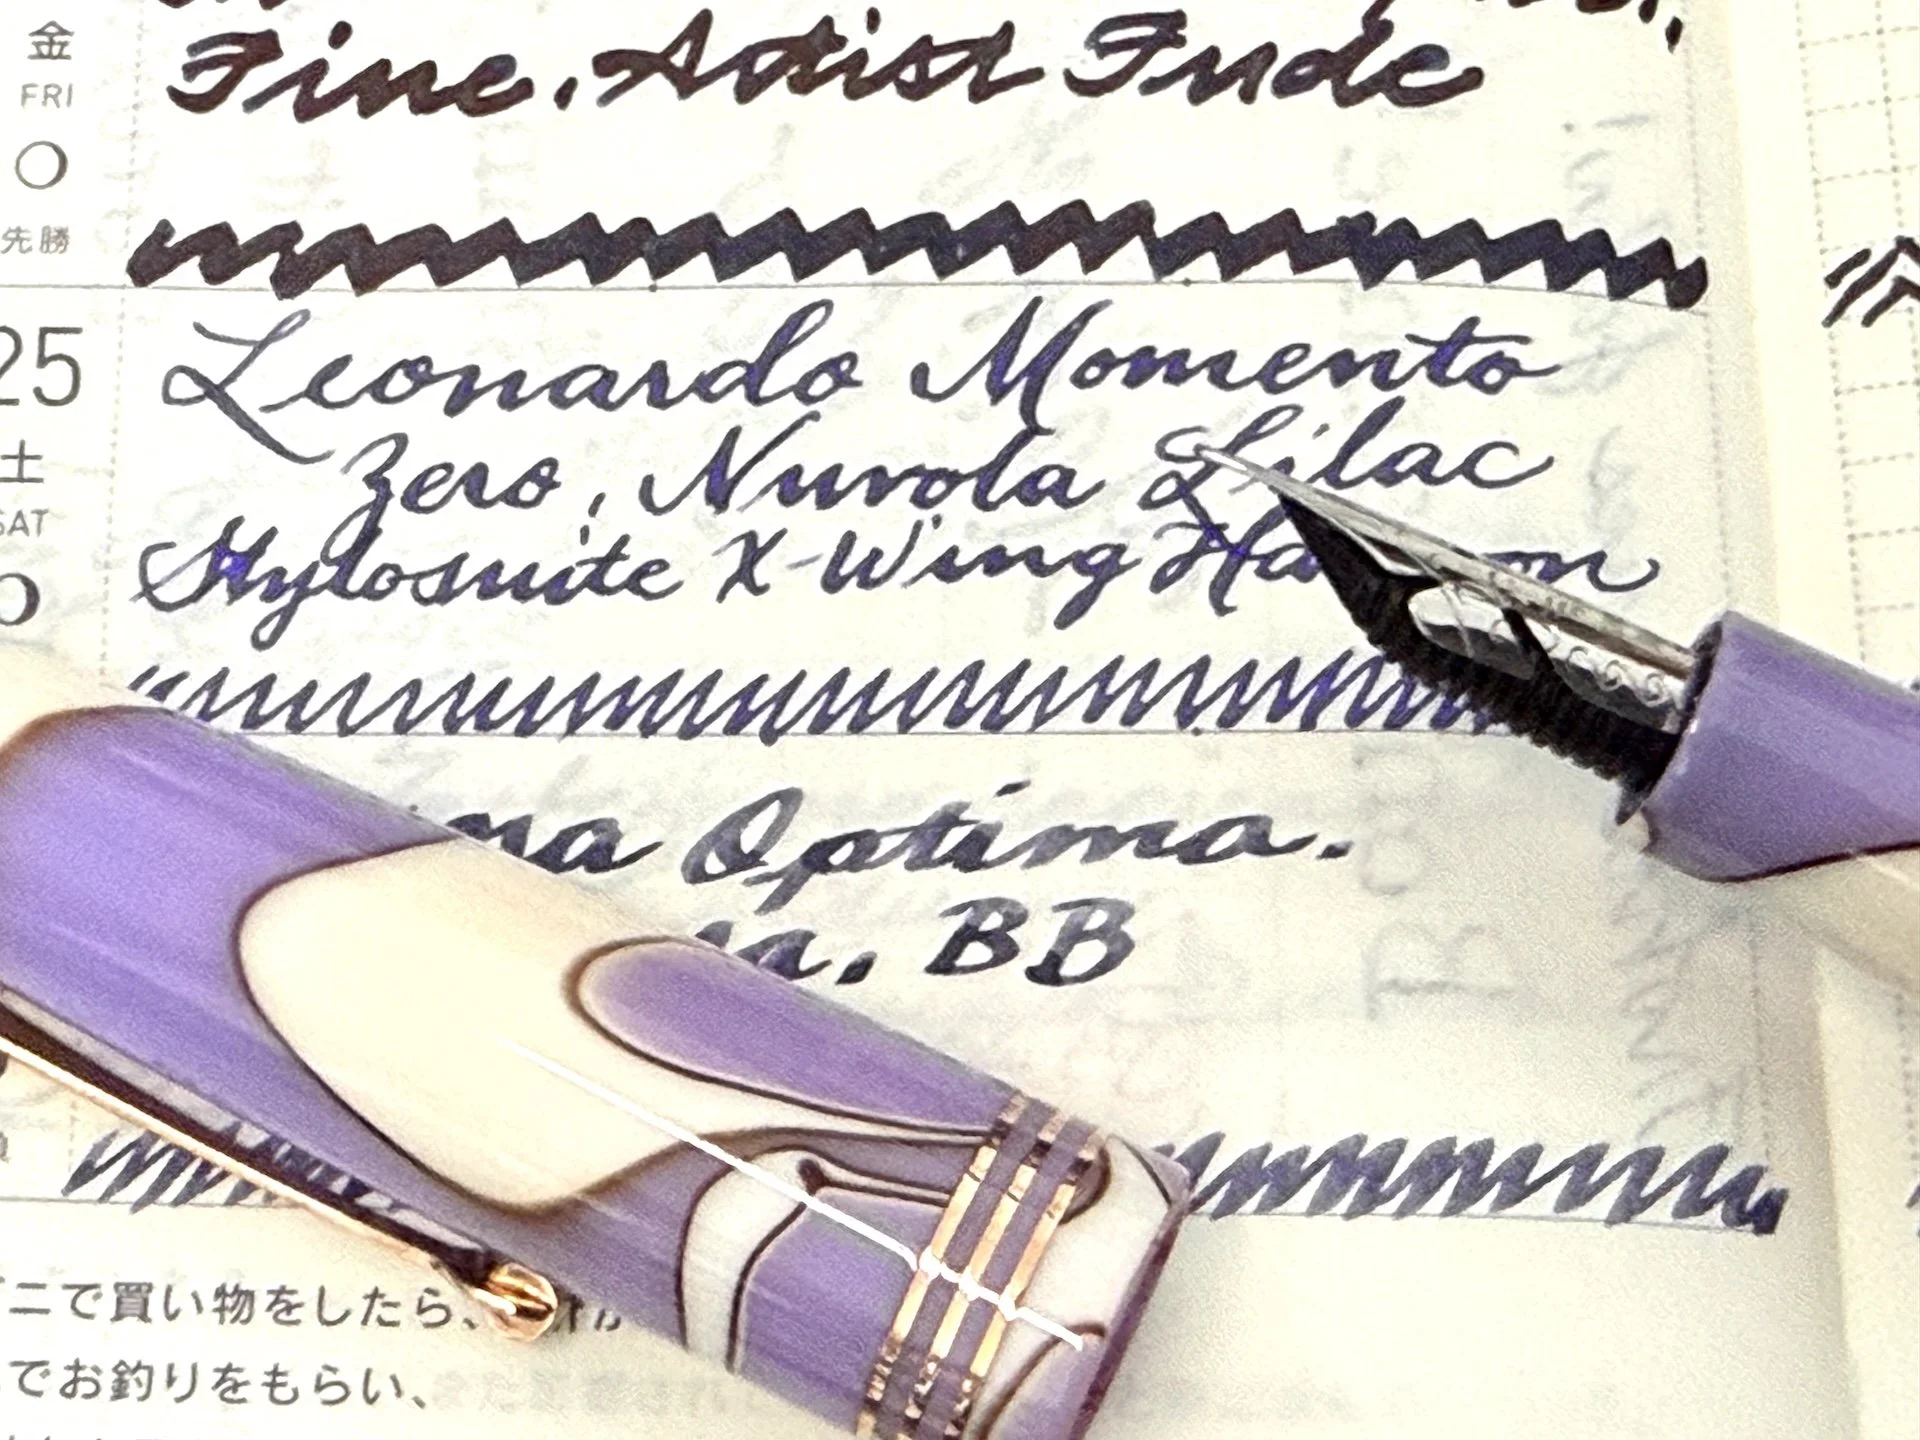 Fine, Artist Fude
金
FRI
先勝
Leonardo Momento
Zero, Nuvola Lilac
Stylosuite X-Wing
25
土
SAT
Optima.
BB
ニで買い物をしたら、
でお釣りをもらい、